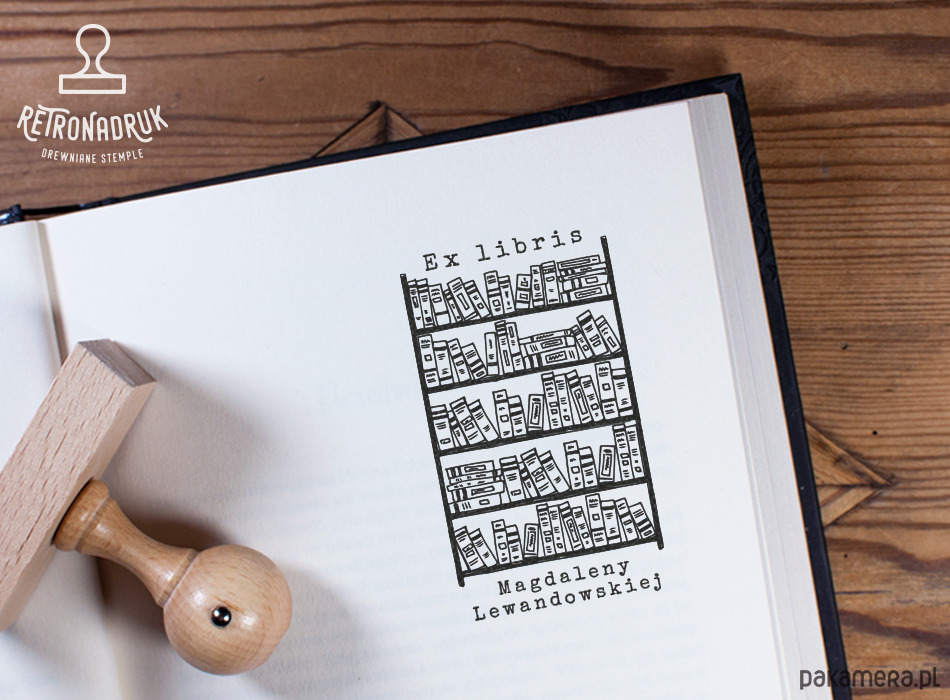 RETRONADRUK
DREWNIANE STEMPLE
Ex libris
Magdaleny
Lewandowskiej
pakamera.pl